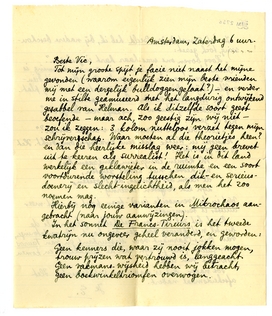 Amsterdam, Zaterdag 6 uur.
Beste Vic,
Tot mijn groote spijt je facie niet naast het mijne
gevonden (waarom eigenlijk zien mijn beste vrienden
mij met een dergelijk bulldoggengelaat?) – en verder
me in stilte geamuseerd met het langdurig ontwijkend
gesabbel van Helman. Als ik ditzelfde soort goed
beoefende – maar ach, zoo geestig zijn wij niet –
zou ik zeggen: 3 kolom nutteloos verzet tegen mijn
schrijnwonden. Waar moeten al die theorietjes heen?
en dan die heerlijke misslag weer: mij geen drevet
uit te keeren als surrealist! Het is in dit land
werkelijk een geklungel in de ruimte en een soort
voortdurende worsteling tusschen dik- en serieus-
doenerij en slecht-ingelichtheid, als men het zoo
noemen mag.
Hierbij nog eenige varianten in Mikrochaos aan-
gebracht (naar jouw aanwijzingen).
In het sonnet De Francs-Tireurs is het tweede
kwatrijn nu ongeveer geheel veranderd, en geworden:
Geen kenners die, waar zij nooit jokken mogen,
trouw prijzen wat vertrouwd is, langgeacht.
Geen vakmans wijsheid hebben wij betracht,
geen boekwinkeltriomfen overwogen.